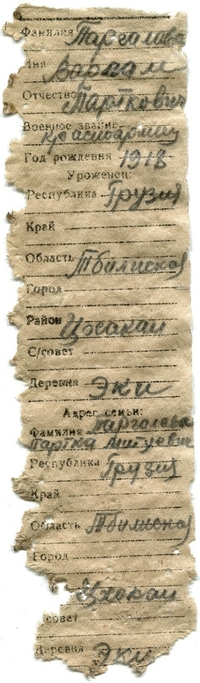 Фамилия Паргалава
Имя Варлам
Отчество Парткович
Военное звание
красноармеец
Год рождения 1918
Уроженец:
Республика Грузия
Край
Область Тбилиской
Город
Район Цхакаи
С/совет
Деревня Эки
Адрес семьи:
Фамилия
Партка
Республика Грузия
Край
Область Тбилиской
Город
Цхакаи
совет
Деревня Эки